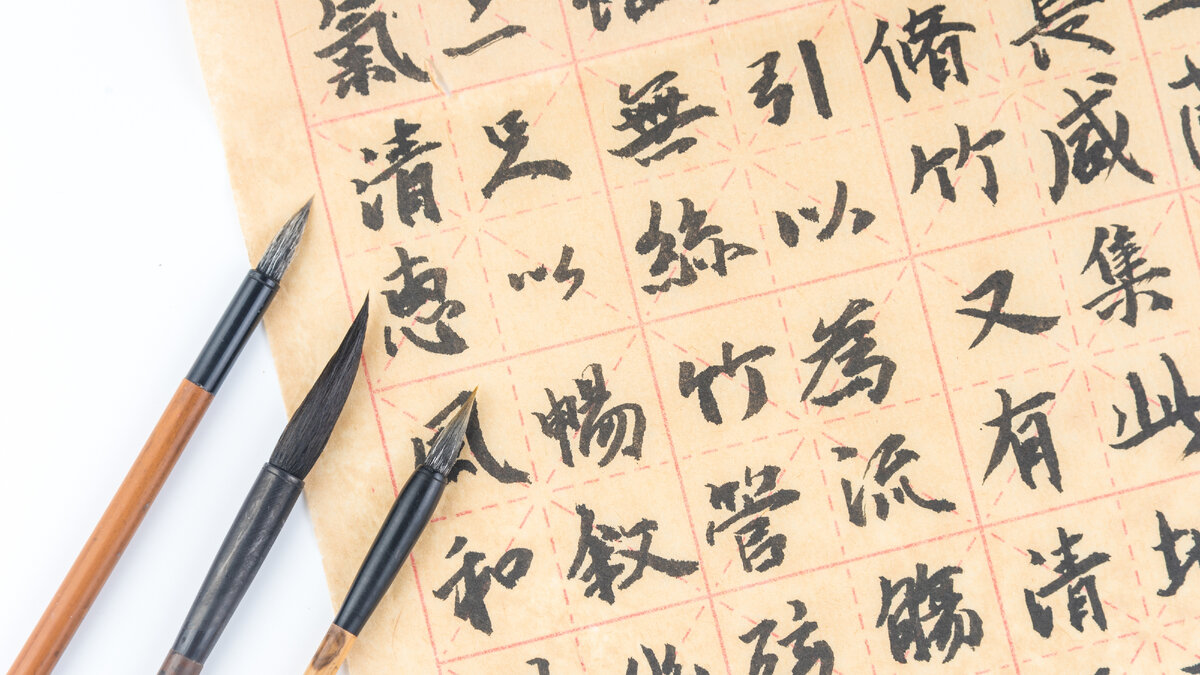 長咸集此
脩竹又有清
引以為流觴
無絲竹管弦
足以暢敘
氣清惠風和